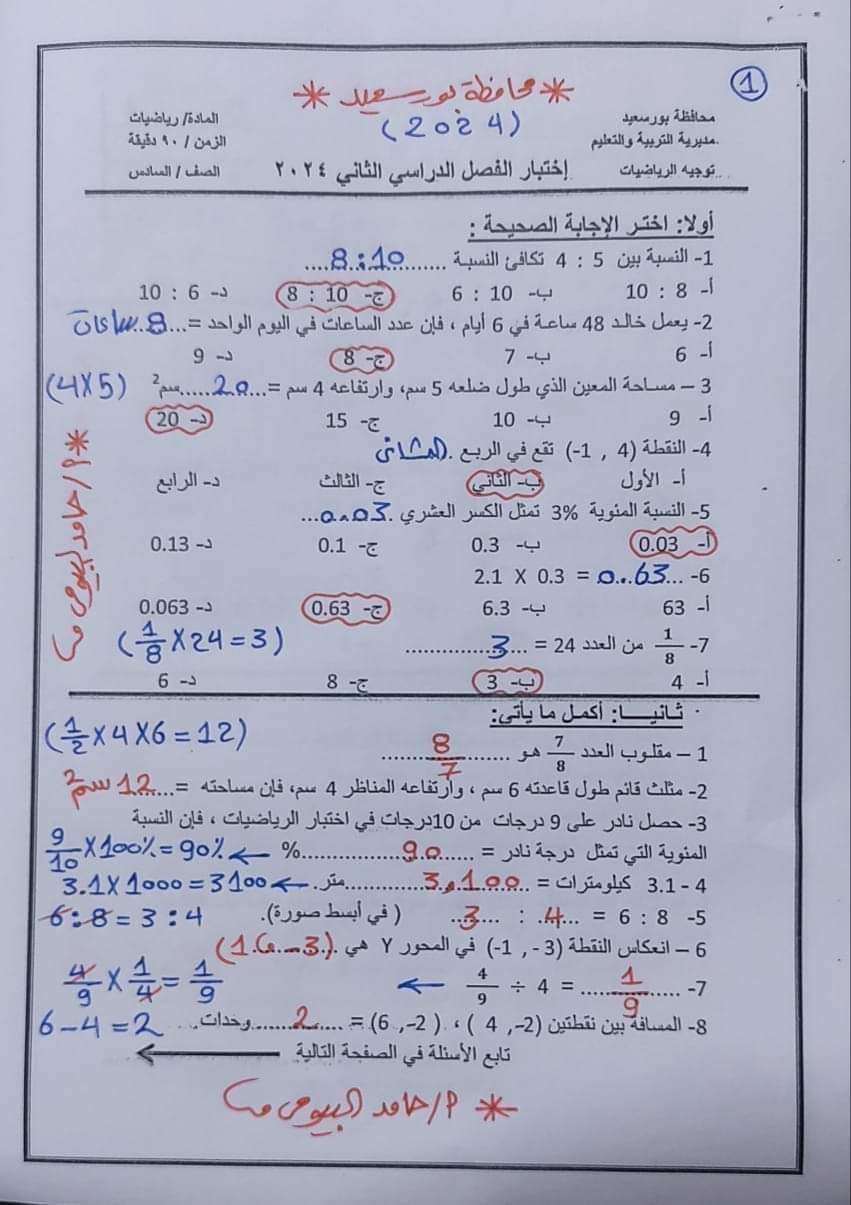 1
* محافظة بورسعيد *
(2024)
محافظة بورسعيد
مديرية التربية والتعليم
توجيه الرياضيات
المادة/ رياضيات
الزمن / ٩٠ دقيقة
الصف / السادس
إختبار الفصل الدراسي الثاني ٢٠٢٤
أولا: اختر الإجابة الصحيحة :
1- النسبة بين 5 : 4 تكافئ النسبة ....8:10....
أ- 8 : 10 ب- 10 : 6 ج- 10 : 8 د- 6 : 10
2- يعمل خالد 48 ساعة في 6 أيام ، فإن عدد الساعات في اليوم الواحد = ...8 ساعات
أ- 6 ب- 7 ج- 8 د- 9
3 – مساحة المعين الذي طول ضلعه 5 سم، وارتفاعه 4 سم = ...20... سم2 (4X5)
أ- 9 ب- 10 ج- 15 د- 20
4- النقطة (4 , 1-) تقع في الربع . الثانى
أ- الأول ب- الثاني ج- الثالث د- الرابع
5- النسبة المئوية 3% تمثل الكسر العشري .0.03...
أ- 0.03 ب- 0.3 ج- 0.1 د- 0.13
6- 2.1 X 0.3 = 0.63...
أ- 63 ب- 6.3 ج- 0.63 د- 0.063
7- 1/8 من العدد 24 = ...3... (1/8 X 24 = 3)
أ- 4 ب- 3 ج- 8 د- 6
* ٩/حامد البيومى
ثانيـــا: أكمل ما يأتى:
1 – مقلوب العدد 7/8 هو ...8/7...
(1/2 X 4 X 6 = 12)
2- مثلث قائم طول قاعدته 6 سم ، وارتفاعه المناظر 4 سم، فإن مساحته = ...12 سم2
3- حصل نادر على 9 درجات من 10درجات في اختبار الرياضيات ، فإن النسبة
المئوية التي تمثل درجة نادر = ...90...% ← 9/10 X 100% = 90%
4 - 3.1 كيلومترات = ...3100... متر. ← 3.1 X 1000 = 3100
5- 6 : 8 = .4... : ...3... ( في أبسط صورة). 6:8 = 3:4
6 – انعكاس النقطة (3- , 1-) في المحور Y هي (1 , -3)
7- 4/9 ÷ 4 = ...1/9... ← 4/9 X 1/4 = 1/9
8- المسافة بين نقطتين (2- ,4 ) ، (2- ,6) = ...2... وحدات. 6 – 4 = 2
تابع الأسئلة في الصفحة التالية
* ٩/حامد البيومى